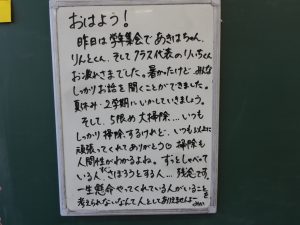 おはよう!
昨日は学年集会であきはちゃん、
りんとくん、そしてクラス代表のりいちくん
お疲れさまでした。暑かったけど みんな
しっかりお話を聞くことができました。
夏休み・2学期にいかしていきましょう。
そして、5限め大掃除…いつも
しっかり掃除するけれど、いつも以上に
頑張ってくれてありがとう 掃除も
人間性がわかるよね。ずっとしゃべって
いる人 さぼろうとする人…残念です。
一生懸命やってくれている人がいることを
考えられないなんて人としてありえませんよー